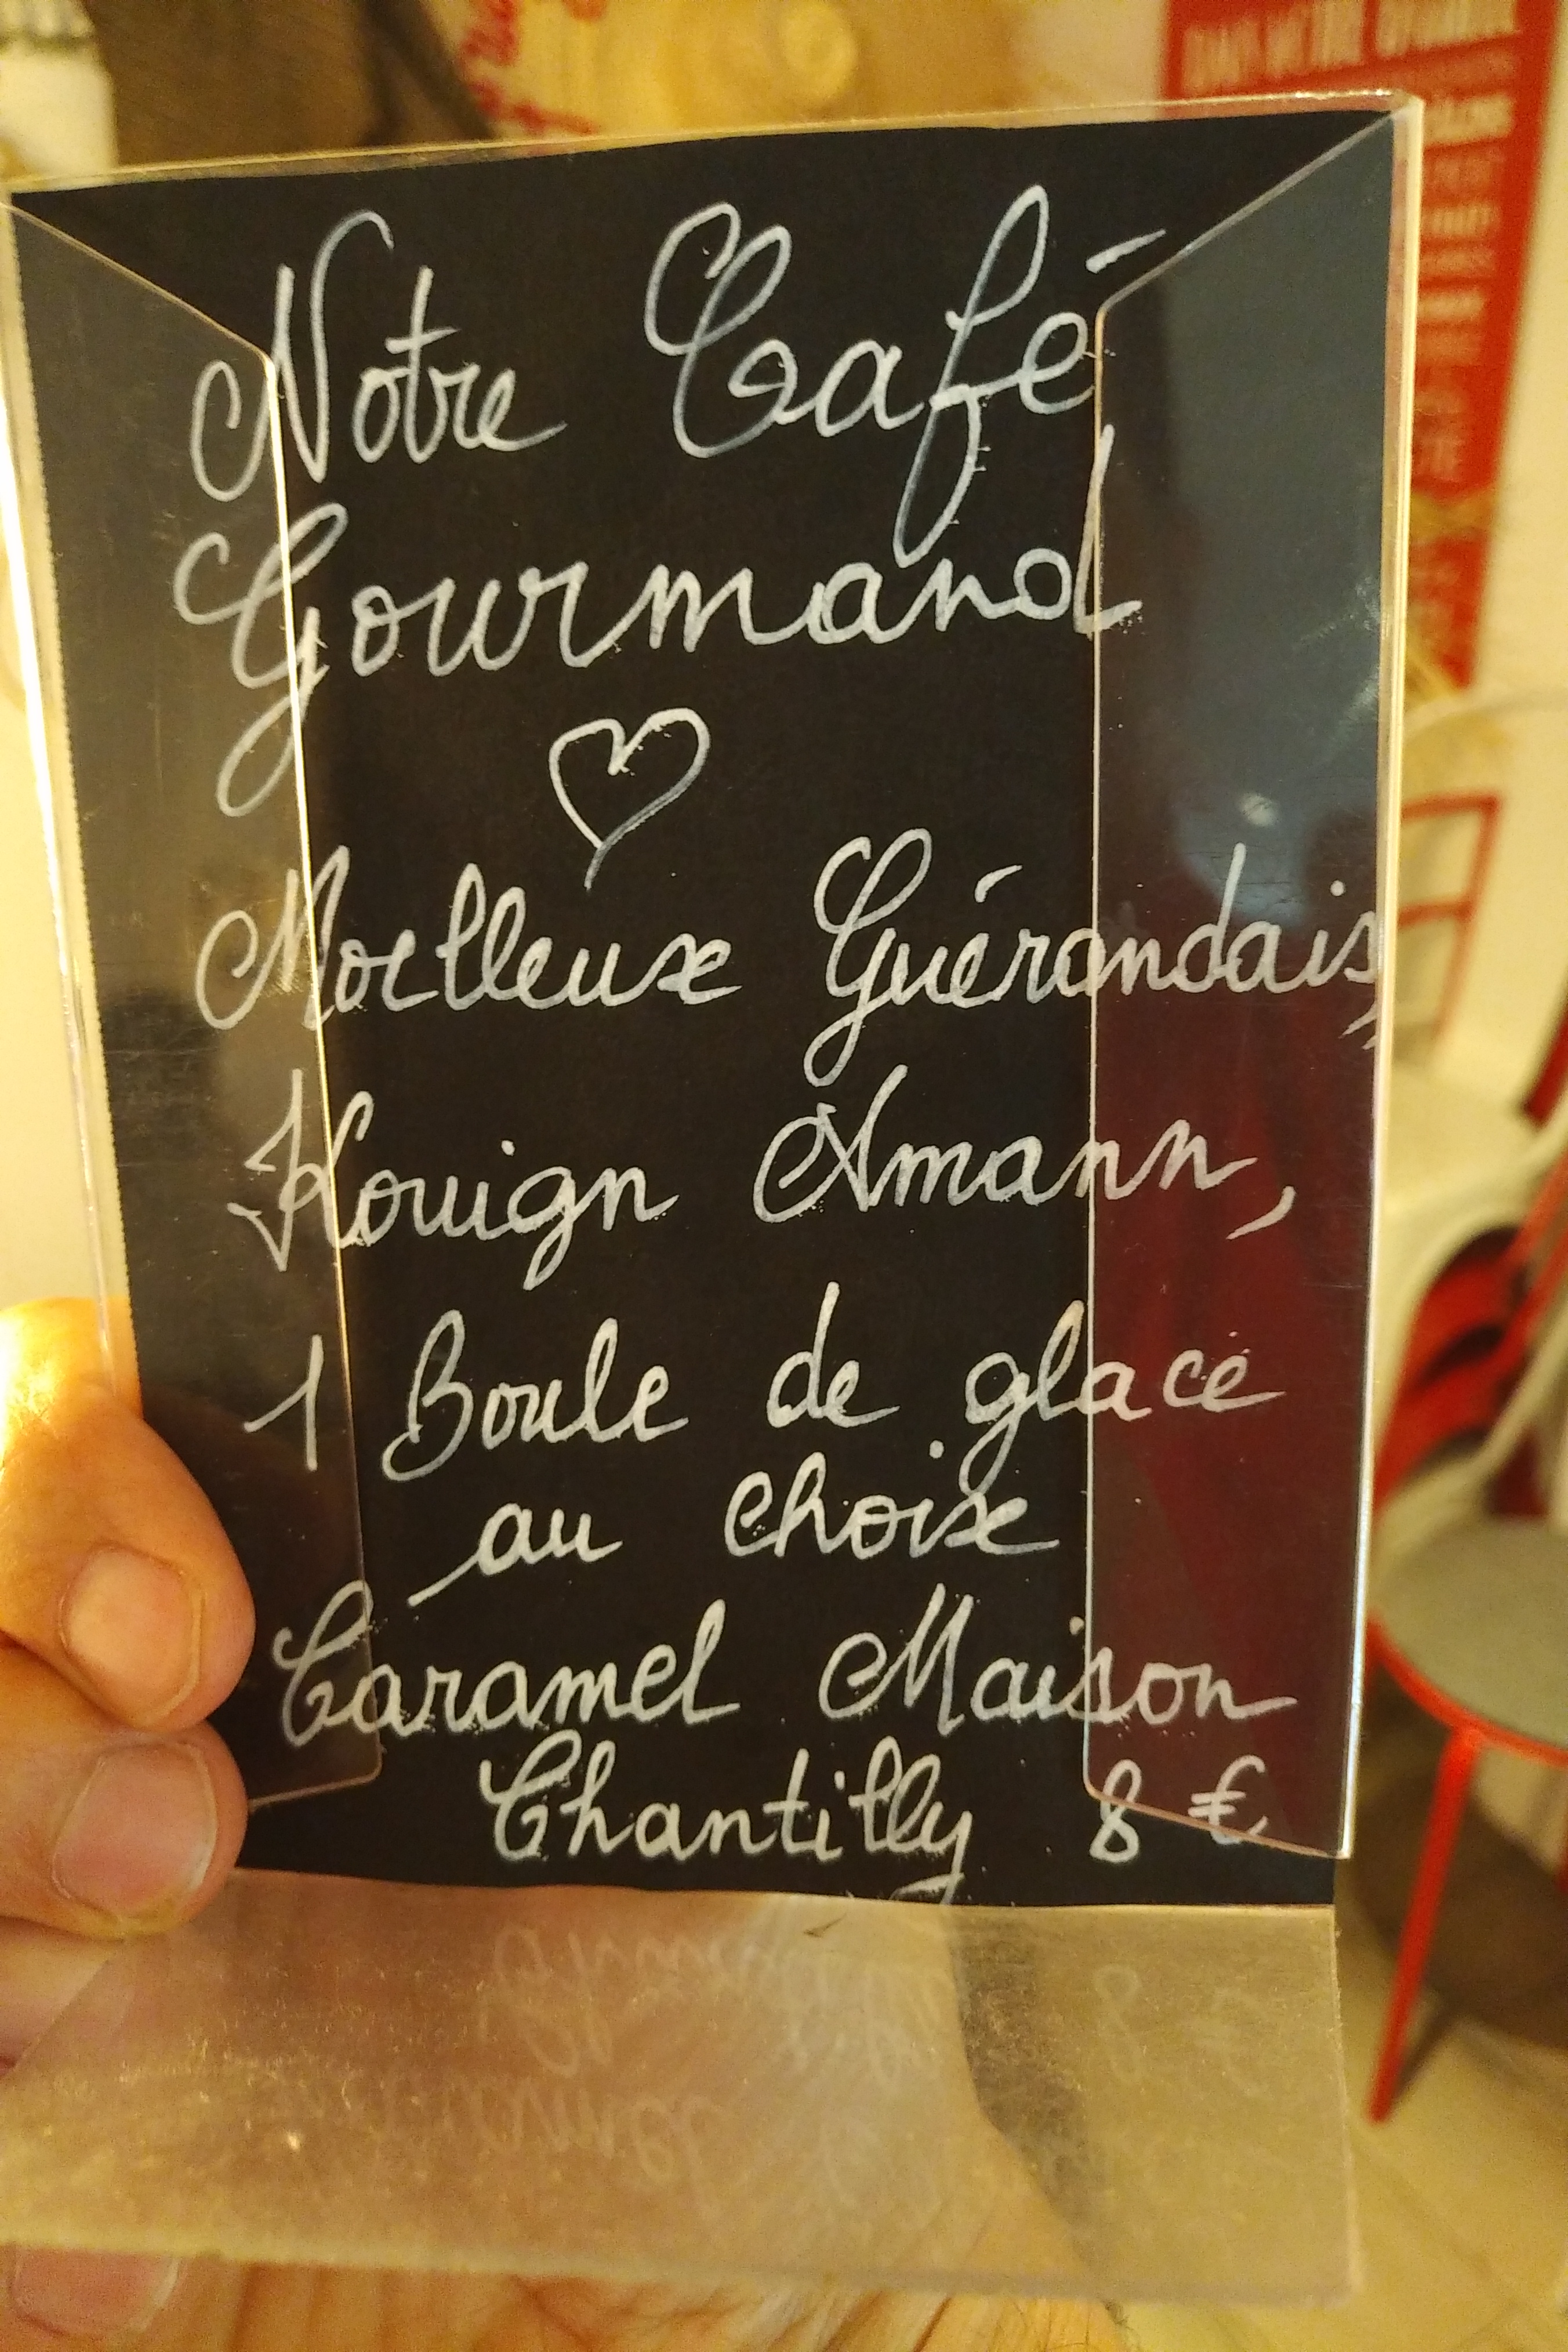 Notre Café
Gourmand
Moelleux Guérandais,
Kouign Amann,
1 Boule de glace
au choix
Caramel Maison
Chantilly 8 €